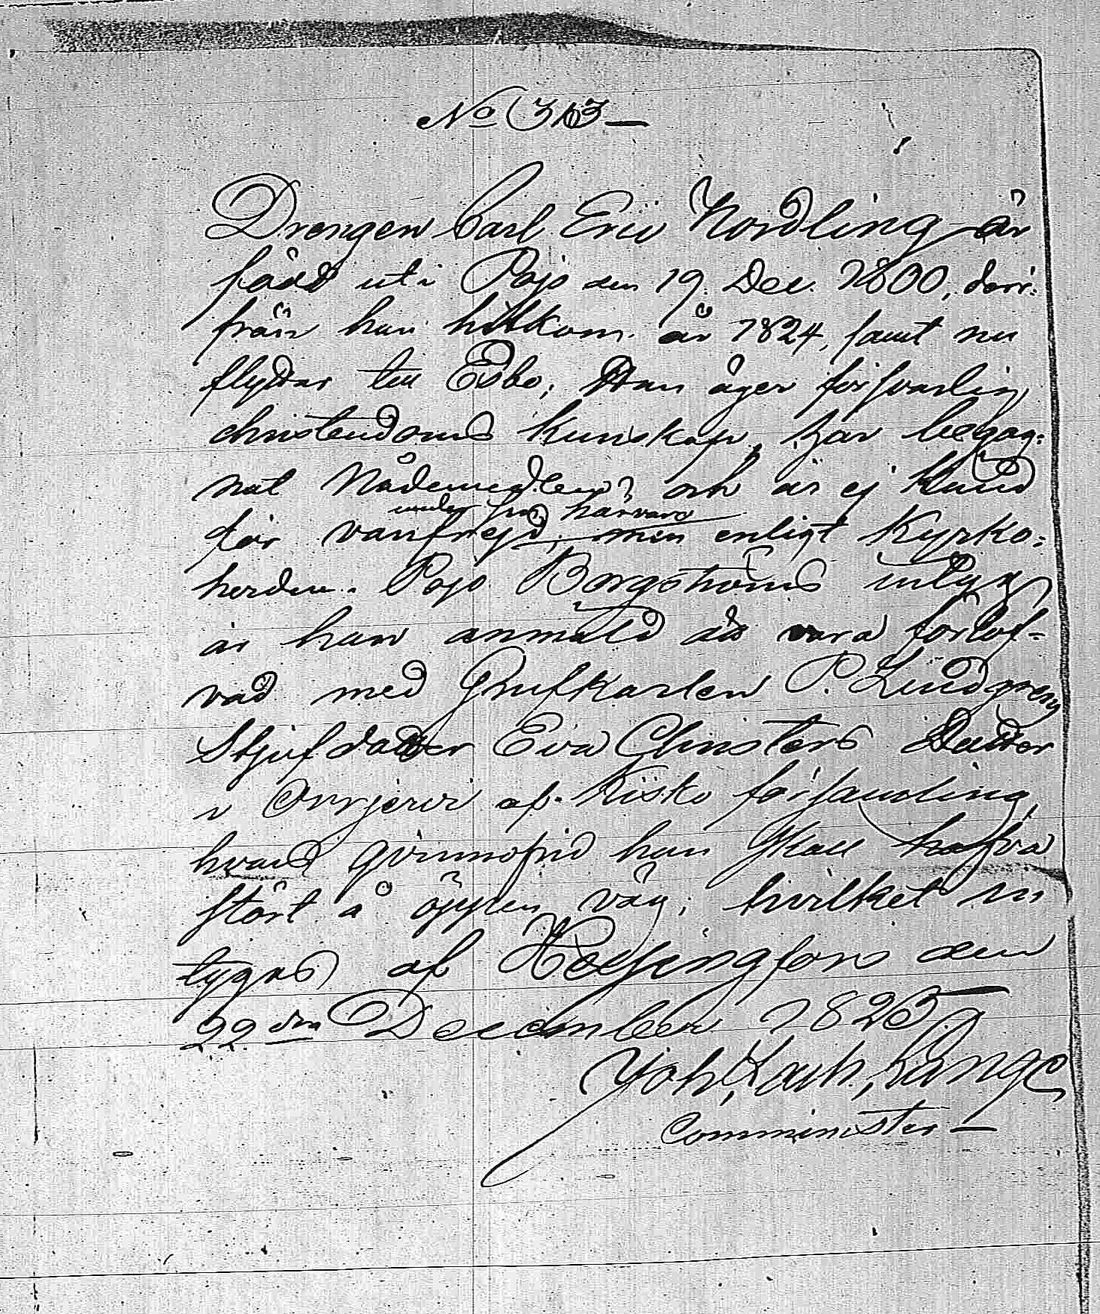 No 363
Drengen Carl Eric Nordling är
född uti Pojo den 19. Dec. 1800, deri-
från han hitkom år 1824, samt nu
flyttar till Esbo; Han äger försvarlig
christendoms kunskap, har begag-
nat Nådemedlen och är ej känd
under sin härvaro
för vanfrejd, men enligt Kyrko-
herden i Pojo Borgströms intyg
är han anmäld att vara förlof-
vad med Grufkarlen P. Lindgrens
Stjufdotter Eva Christers Dotter
i Orijervi af Kisko församling,
hvars qvinnofrid han skall hafva
stört å öppen väg, hvilket in
tygas af Helsingfors den
22 dra December 1825
Joh, Range
Comminister